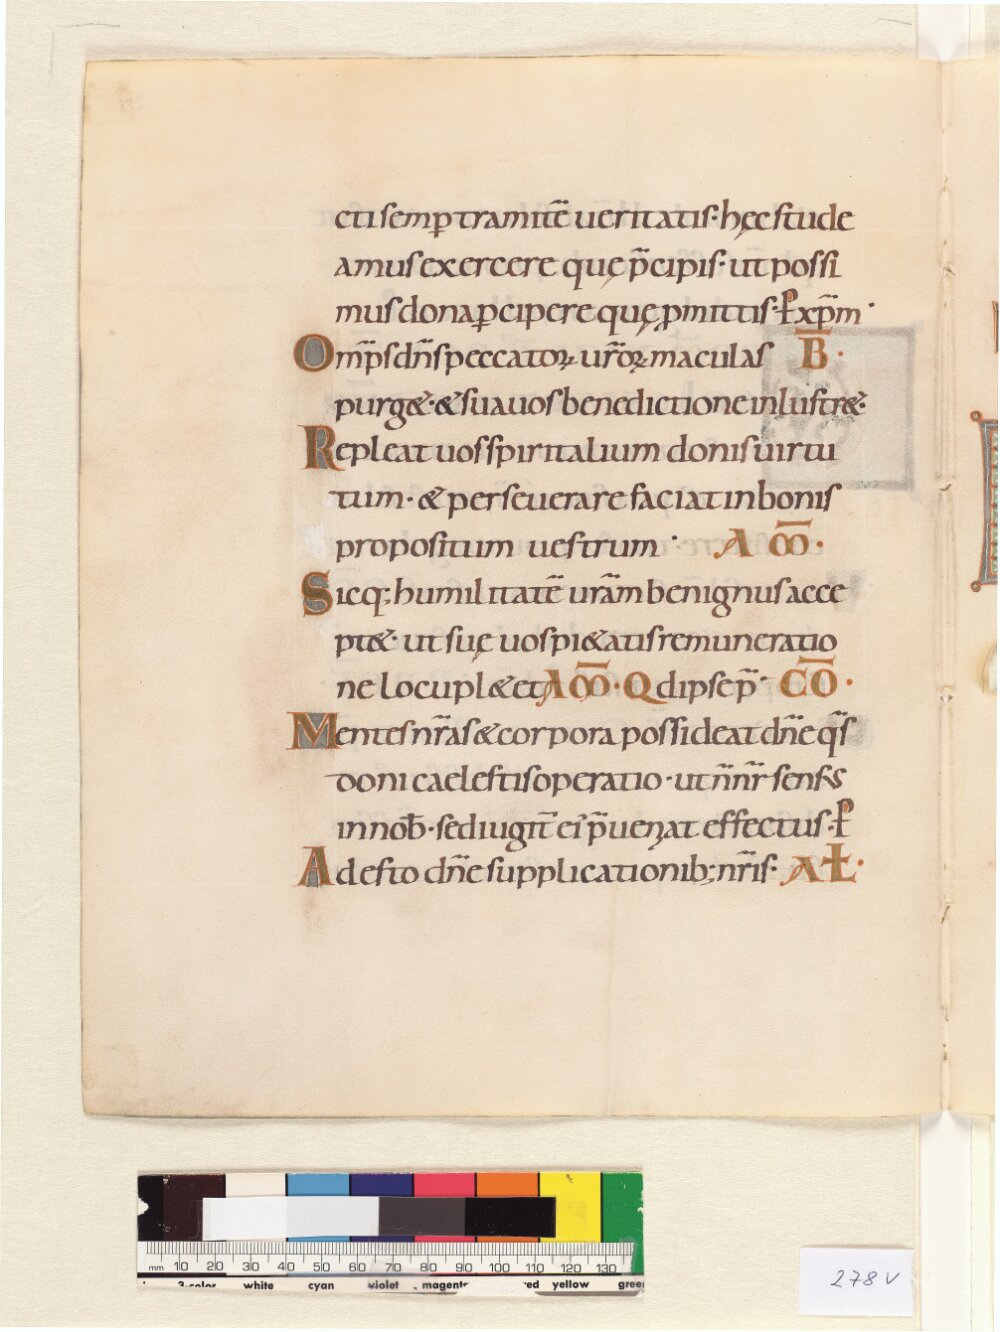 cti semꝑ tramitē ueritatis· hęc stude
amus exercere quę p̄cipis· ut possi
mus dona ꝑcipere quę ꝓmittis· P̄ xp̄m·
Omp̄s dn̄s peccatoꝝ ur̄oꝝ maculas B̄·
purg&· & suauos benedictione inlustr&·
Repleat uos spiritalium donis uirtu
tum· & perseuerare faciat in bonis
propositum uestrum· A M̄·
Sicq; humilitatē urām benignus acce
pt&· ut suę uos pi&atis remuneratio
ne locupl&et A M̄· Qd ipse p̄· CŌ·
Mentes nr̄as & corpora possideat dn̄e qs̄
doni caelestis operatio· ut n̄ nr̄ sensus
in nob̄· sed iugit̄ ei᷒ p̄ueniat effectus· P̄
Adesto dn̄e supplicationib; nr̄is· AŁ·
mm 10 20 30 40 50 60 70 80 90 100 110 120 130
3-color white cyan violet magenta red yellow green
278v